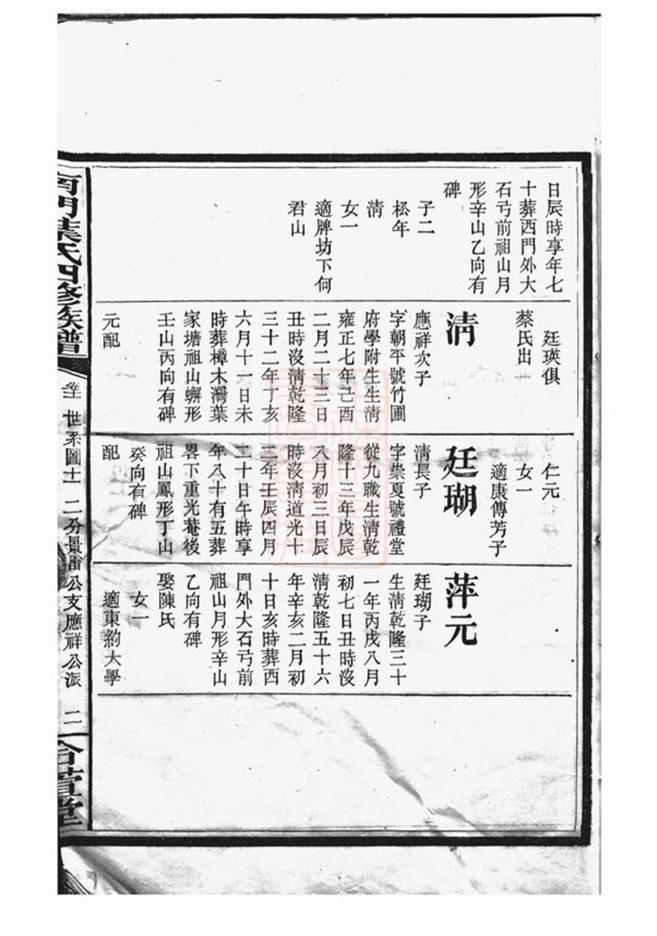 日辰時享年七
十葬西門外大
石弓前祖山月
形辛山乙向有
碑
子二
松年
淸
女一
適牌坊下何
君山
廷瑛俱
蔡氏出
淸
應祥次子
字朝平號竹圃
府學附生生淸
雍正七年己酉
二月二十三日
丑時沒淸乾隆
三十二年丁亥
六月十一日未
時葬樟木灣葉
家塘祖山蠏形
壬山丙向有碑
元配
仁元
女一
適康傳芳子
廷瑚
淸長子
字崇夏號禮堂
從九職生淸乾
隆十三年戊辰
八月初三日辰
時沒淸道光十
二年壬辰四月
二十日午時享
年八十有五葬
畧下重光菴後
祖山鳳形丁山
癸向有碑
配
萍元
廷瑚子
生淸乾隆三十
一年丙戌八月
初七日丑時沒
淸乾隆五十六
年辛亥二月初
十日亥時葬西
門外大石弓前
祖山月形辛山
乙向有碑
娶陳氏
女一
適東約大學
南門葉氏四修族譜
世系圖十一
二分景雷公支應祥公派
二
合萱堂